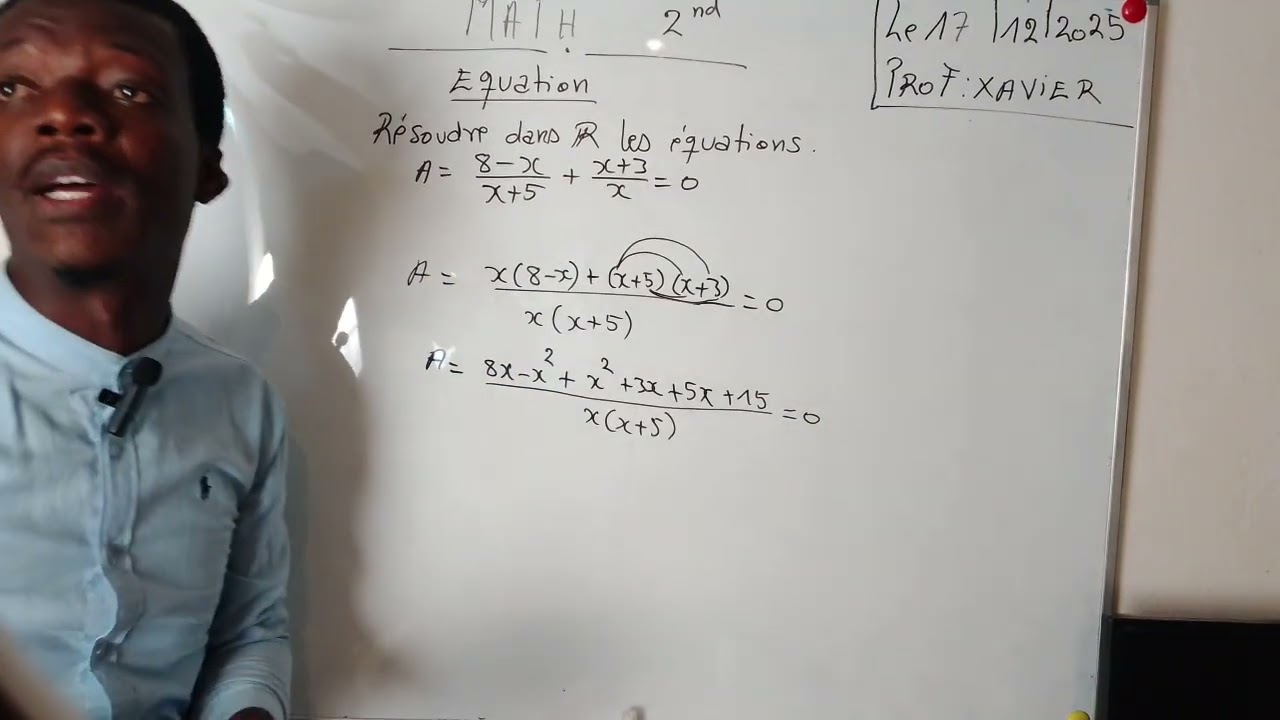 MATH. 2nd
Le 17 /12/2025
PROF: XAVIER
Equation
Résoudre dans ℝ les équations.
A = (8-x)/(x+5) + (x+3)/x = 0
A = (x(8-x) + (x+5)(x+3))/(x(x+5)) = 0
A = (8x-x² + x² +3x+5x+15)/(x(x+5)) = 0